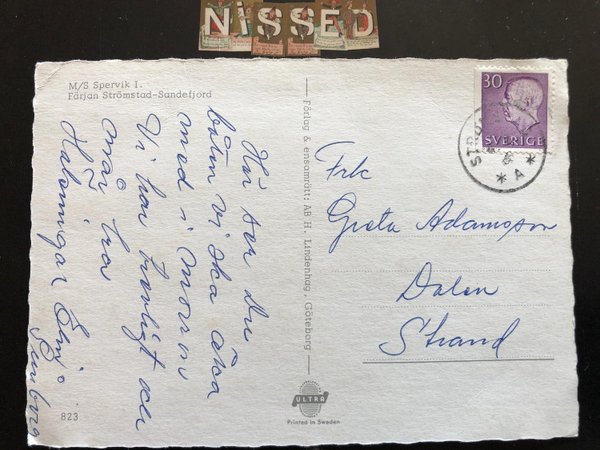 NiSSED
M/S Spervik I.
Färjan Strömstad-Sandefjord
Här ser Du
båten vi ska åka
med i morron
Vi har trevligt och
mår bra
Hälsningar Elni o
Gunborg
823
Förlag & ensamrätt: AB H. Lindenhag, Göteborg
30
SVERIGE
STR
A
Frk
Greta Adamsson
Dalen
Strand
ULTRA
Printed in Sweden